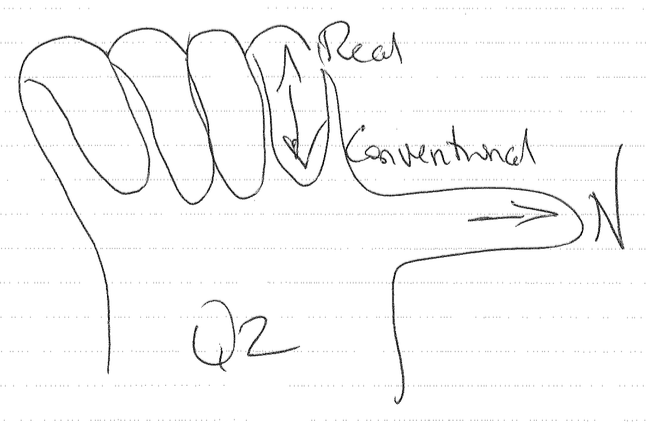 Real
Conventional
N
Q2